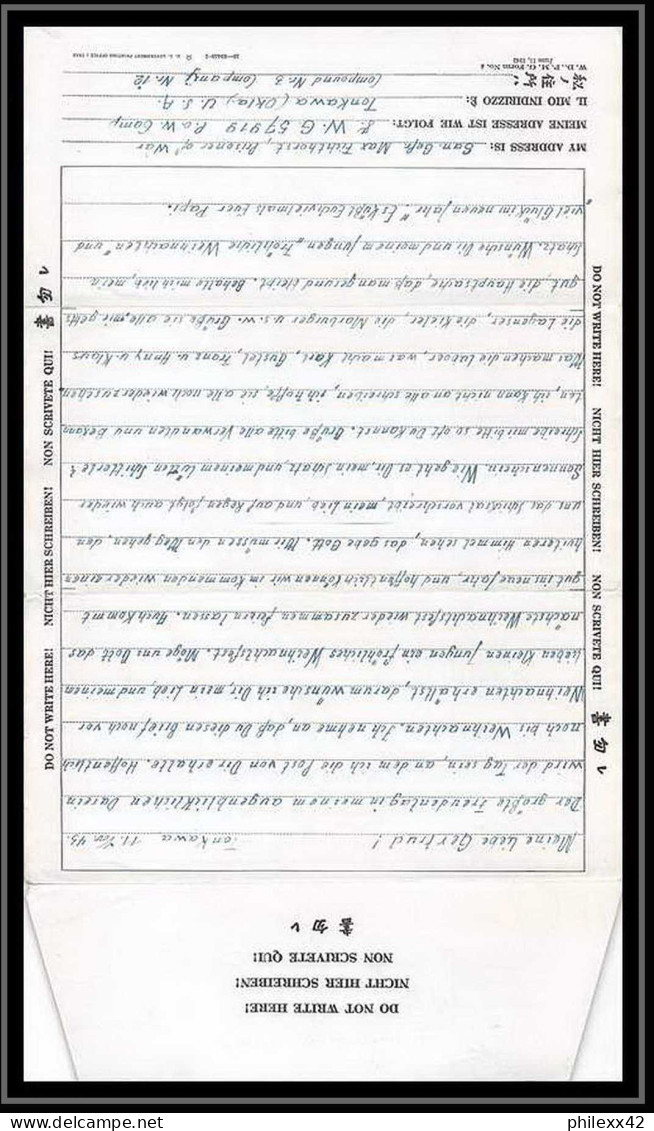 DO NOT WRITE HERE!
NICHT HIER SCHREIBEN!
NON SCRIVETE QUI!
書勿レ
Meine liebe Gertrud! Tonkawa 11. 43.
Der größte Freudentag in meinem augenblicklichen Dasein
wird der Tag sein, an dem ich die Post von Dir erhalte. Hoffentlich
noch bis Weihnachten. Ich nehme an, daß Du diesen Brief noch vor
Weihnachten erhältst, darum wünsche ich Dir, mein Lieb, und meinem
lieben kleinen Jungen ein fröhliches Weihnachtsfest. Möge uns Gott das
nächste Weihnachtsfest wieder zusammen feiern lassen. Auch kommt
gut ins neue Jahr, und hoffentlich können wir im kommenden wieder einen
heiteren Himmel sehen, das gebe Gott. Wir müssen den Weg gehen, den
uns das Schicksal vorschreibt, mein Lieb, und auf Regen folgt auch wieder
Sonnenschein. Wie geht es Dir, mein Schatz, und meinem
Schreibe mir bitte so oft Du kannst. Grüße bitte alle Verwandten und Bekann
ten, ich kann nicht an alle schreiben, ich hoffe, sie alle noch wiederzusehen
Was machen die Laboer, was macht Karl, Gustel, Franz u. Anny u. Klaus
die Lagenser, die Kieler, die Marburger u.s.w. Grüße sie alle, mir geht's
gut, die Hauptsache, daß man gesund bleibt. Behalte mich lieb, mein
Schatz. Wünsche Dir und meinem Jungen „Fröhliche Weihnachten" und
„viel Glück im neuen Jahr." Es küßt Euch vielmals Euer Papi.
DO NOT WRITE HERE! NICHT HIER SCHREIBEN! NON SCRIVETE QUI! 書勿レ
DO NOT WRITE HERE! NICHT HIER SCHREIBEN! NON SCRIVETE QUI! 書勿レ
MY ADDRESS IS: San. Gefr. Max Prisoner of War
MEINE ADRESSE IST WIE FOLGT: W. G 57919 P.o.W Camp
IL MIO INDIRIZZO È: Tonkawa (Okla.) U.S.A.
住所 Compound Nr. 3 Company Nr. 12
W. D., P. M. G. Form No. 4
June 11, 1943
U. S. GOVERNMENT PRINTING OFFICE
philexx42